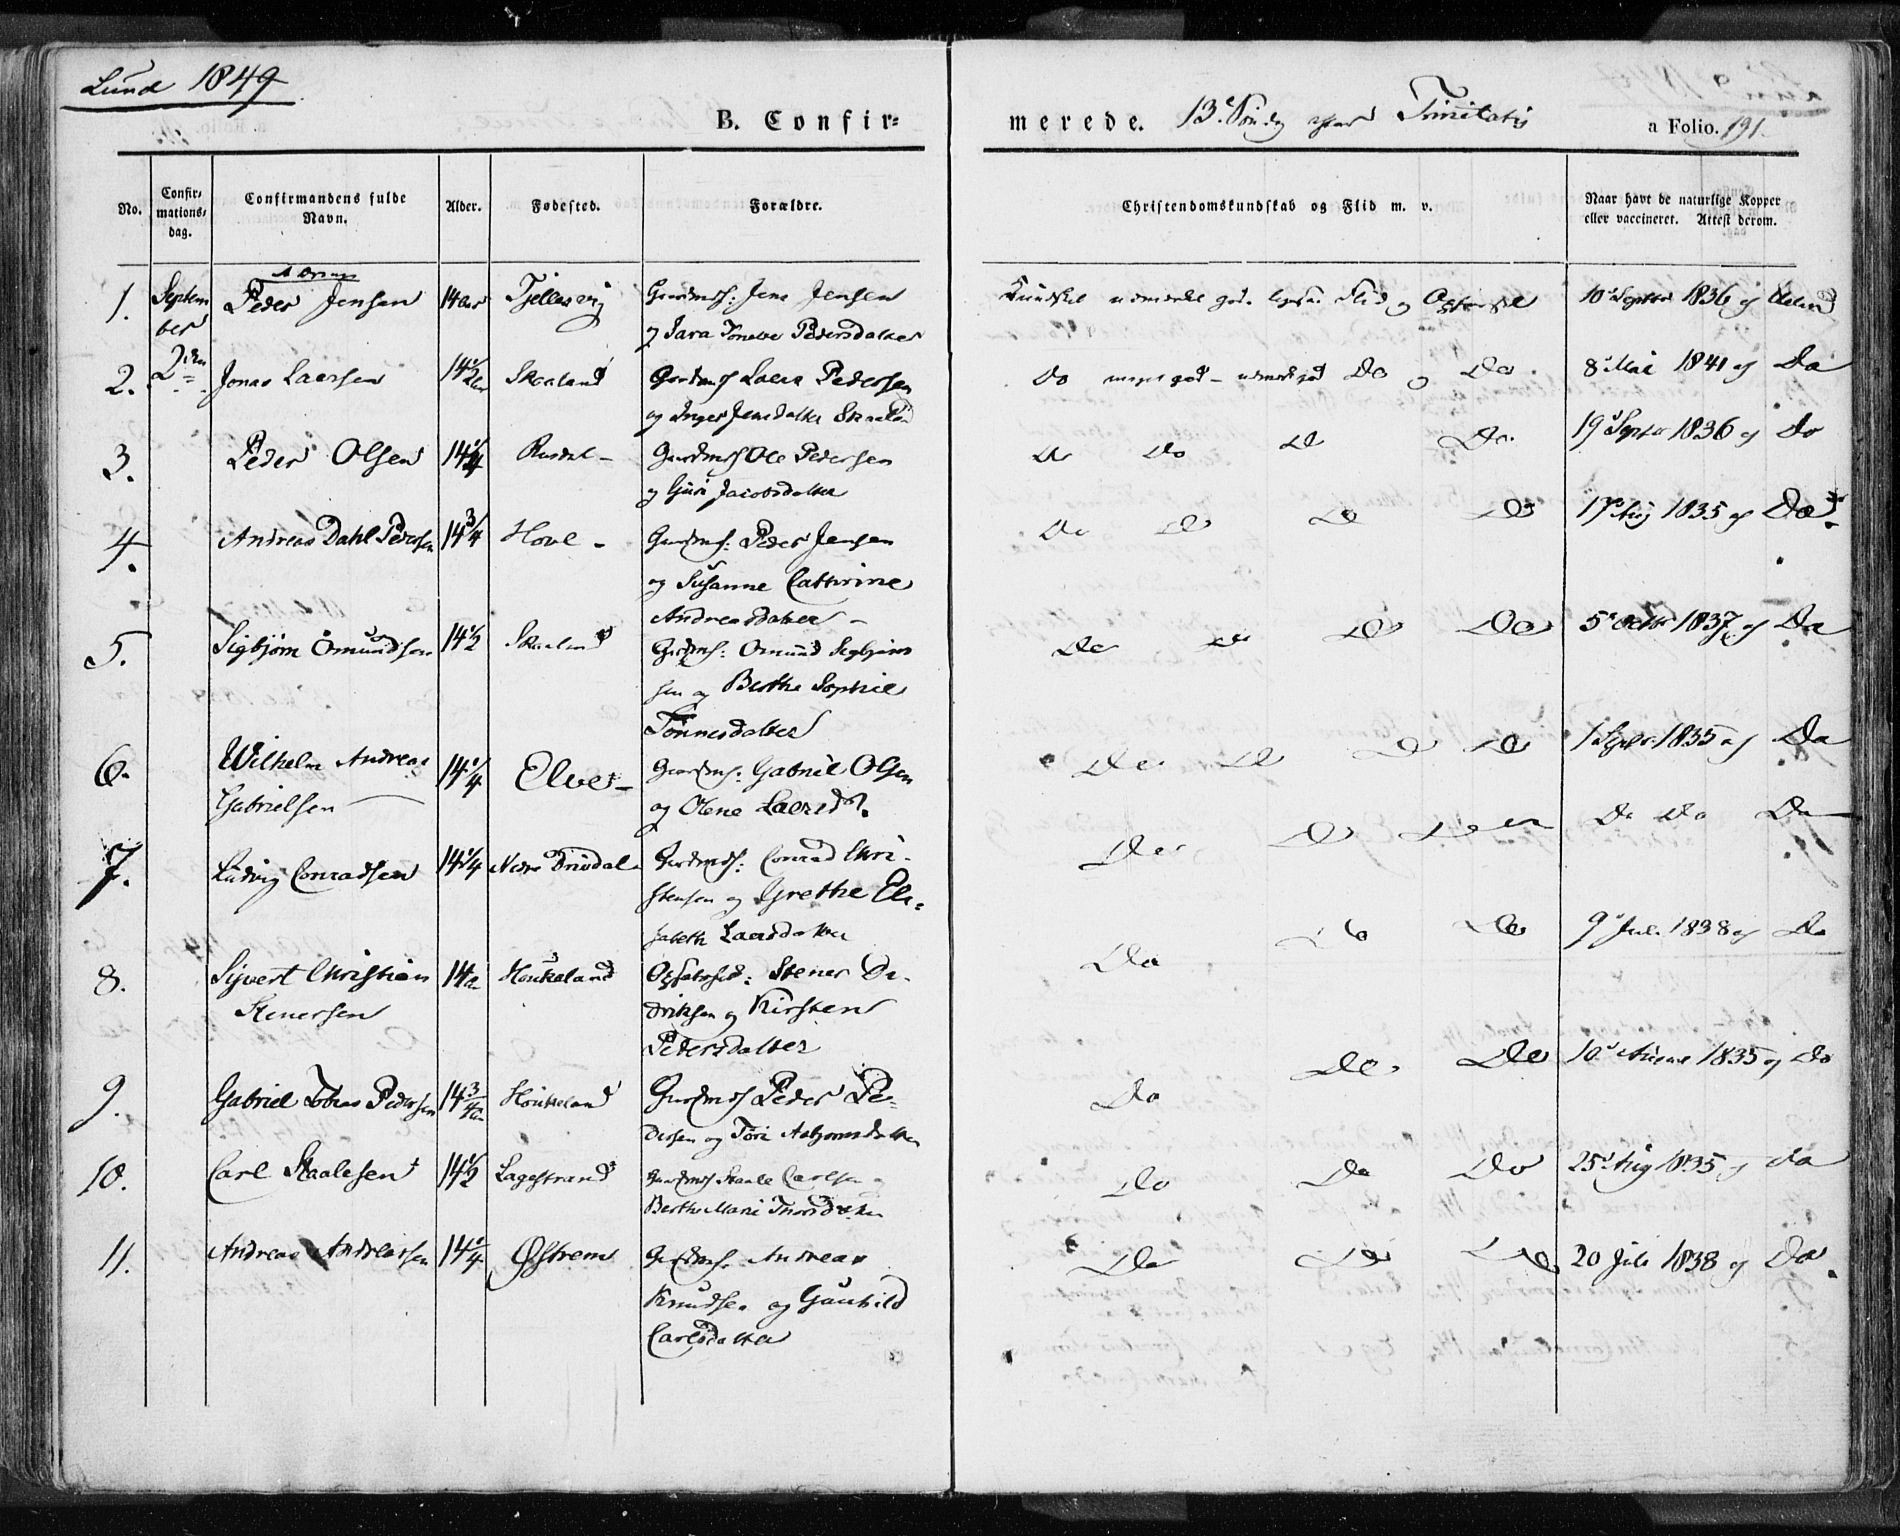 Lund 1849
B. Confir=
merede. 13de Søndag efter Trinitatis
a Folio. 191.
No.
Confir=
mations=
dag.
Confirmandens fulde
Navn.
Alder.
Fødested.
Forældre.
Christendomskundskab og Flid m. v.
Naar havt de naturlige Kopper
eller vaccineret. Attest derom.
1. Septem Peder Jensen 14 aar Tjellesvig Gaardms: Jens Jensen
ber og Sara Pedersdatter
Flid og Opførsel 10 Septbr 1836 af
2. 2den Jonas Laersen 14 1/2 Skaaland Gaardms Laers Pedersen
og Inger Jensdatter
Do Do og Do 8 Mai 1841 af Do
3. Peder Olsen 14 1/4 Rusdal - Gaardms Ole Pedersen
og Guri Jacobsdatter
Do Do Do Do 19 Septbr 1836 af Do
4. Andreas Dahl Pedersen 14 3/4 Hovl - Gaardms: Peder Jensen
og Susanne Cathrine
Andreasdatter -
Do Do Do Do 17 Aug 1835 af Do
5. Sigbjørn Omundsen 14 1/2 Skaaland Gaardms: Omund Sigbjørn
sen og Berthe Sophie
Tønnesdatter
Do Do Do Do 5 Octbr 1837 af Do
6. Wilhelm Andreas 14 1/4 Elve - Gaardms: Gabriel Olsen
Gabrielsen og Olene Laersd.
Do Do Do Do 1 Septbr 1835 af Do
7. Ludvig Conradsen 14 1/4 Nedre Drivdal Gaardms: Conrad Chri-
stensen og Grethe Eli=
sabeth Laersdatter
Do Do Do Do Do Do
8. Sivert Christian 14 a Houkeland Opsidder: Stener Di-
Stenersen driksen og Kirsten
Pedersdatter
Do Do Do 9 Juli 1838 af Do
9. Gabriel Tobias Pedersen 14 3/4 Houkeland Gaardms Peder Pe=
dersen og Tori Asbjørnsdatter
Do Do Do 10 1835 af Do
10. Carl Staalesen 14 1/2 Lagestrand Gaardms Staale Carlsen og
Berthe Marie Thorsdatter
Do Do Do 25 Aug 1835 af Do
11. Andreas Andreassen 14 1/4 Østrem Gaardms. Andreas
Knudsen og Gunhild
Carlsdatter
Do Do Do 20 Juli 1838 af Do